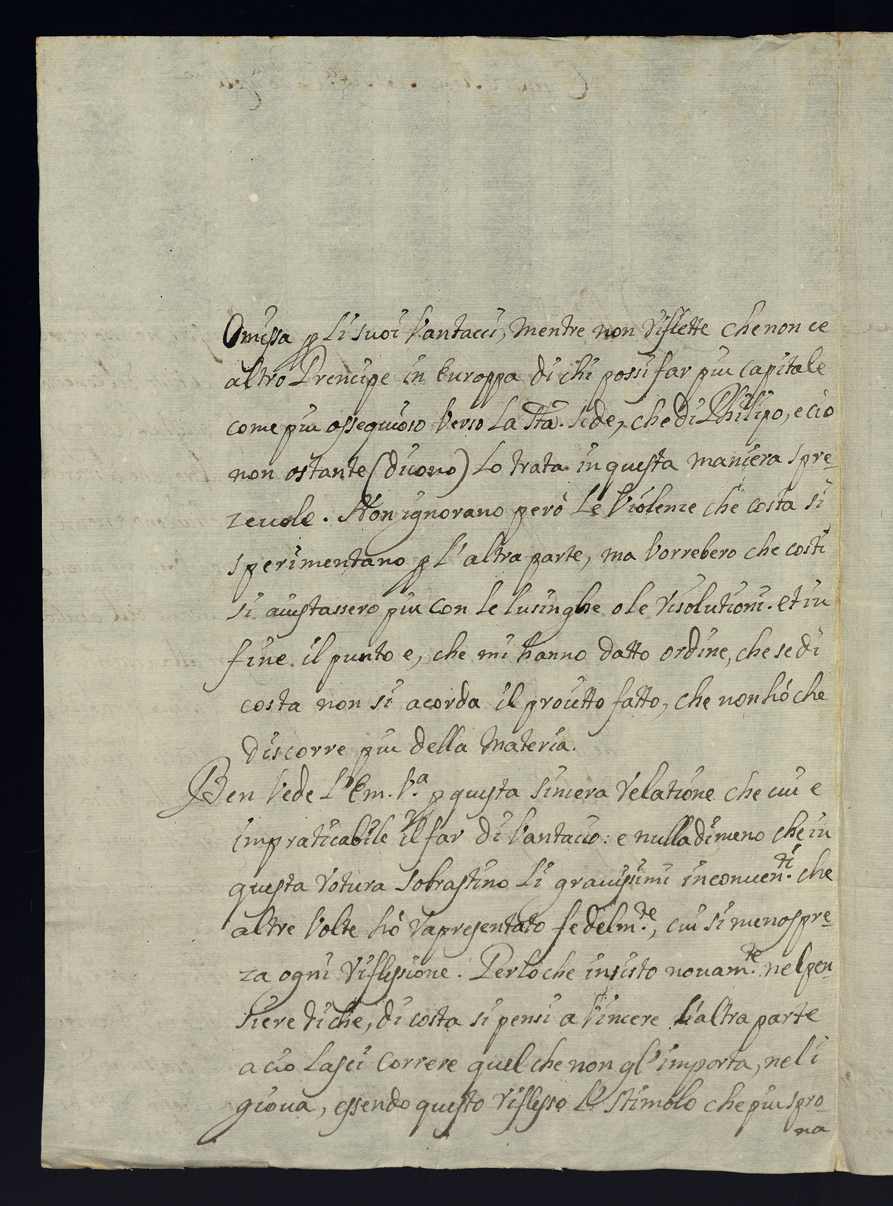 Omissa p li suoi vantacci, mentre non riflette che non ce
altro Prencipe in Europpa di chi possi far piu capitale
come piu ossequioso verso la Sta. Sede, che di Philipo, e cio
non ostante (dicono) lo trata in questa maniera spre-
zeuole. Non ignorano però le violenze che costa si
sperimentano p l'altra parte, ma vorrebero che costi
si aiustassero piu con le lusinghe o le risolutioni. et in
fine il punto e, che mi hanno datto ordine, che se di
costa non si acorda il proietto fatto, che non hò che
discorre piu della materia.
Ben vede l'Em. Va. p questa sincera relatione che cui e
impraticabile il far di vantacio: e nulladimeno che in
questa rotura sobrastino li grauissimi inconuenti. che
altre volte hò rapresentato fedelmte., cui si menospre-
za ogni riflessione. Perloche insisto nouamte. nel pen-
siere di che, di costa si pensi a vincere l'altra parte
acio lasci correre quel che non gl'importa, ne li
gioua, essendo questo riflesso lo stimolo che piu spro-
na